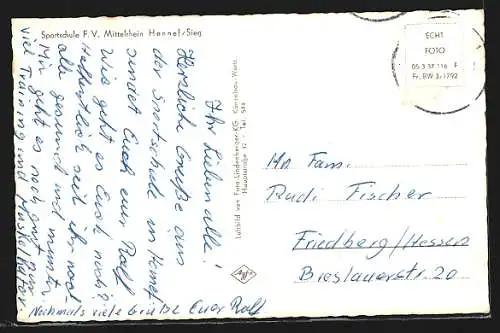 Sportschule F. V. Mittelrhein Hennef/Sieg
Ihr Lieben alle!
Herzliche Grüße aus
der Sportschule in Hennef
sendet Euch euer Rolf
Wie geht es Euch noch?
Hoffentlich seid ihr noch
alle gesund und munter.
Mir geht es noch gut. Nur
viel Training und Muskelkater.
Nochmals viele Grüße Euer Rolf
Luftbild von Franz Lindenberger-KG
Hauptstraße 12 - Tel. 544
Agfa
ECHT
FOTO
05 3 57 116 F
Fr. BW 3/1792
An Fam.
Rudi Fischer
Friedberg/Hessen
Breslauerstr. 20